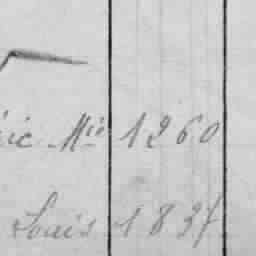 Mie 1260
Louis 1837